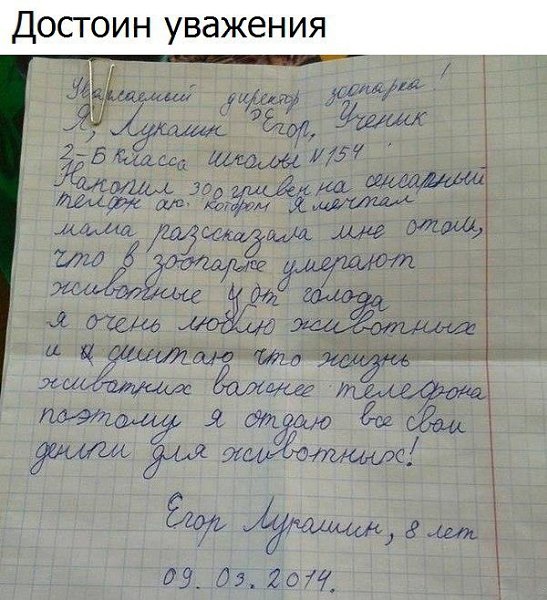 Достоин уважения
Уважаемый директор зоопарка!
Я, Лукашин Егор, Ученик
2-Б класса школы №154
Накопил 300 гривен на сенсарный
телефон ао котором я мечтал
мама разссказала мне отом,
что в зоопарке умерают
животные от голода
я очень люблю животных
и считаю что жизнь
животних важнее телефона
поэтому я отдаю все свои
деньги для животных!
Егор Лукашин, 8 лет
09.03.2014.